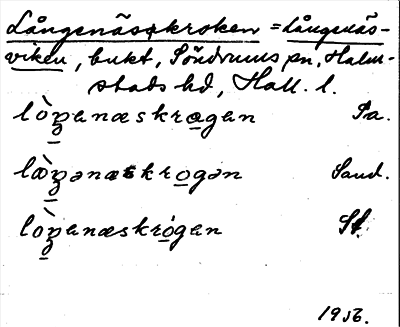 Långenäskroken = Långenäs-
viken, bukt, Söndrums sn, Halm-
stads hd, Hall. l.
lòŋanæskrogan Pa.
læ̀ŋənæskrogən Sand.
lòŋanæskrógan St.
1956.